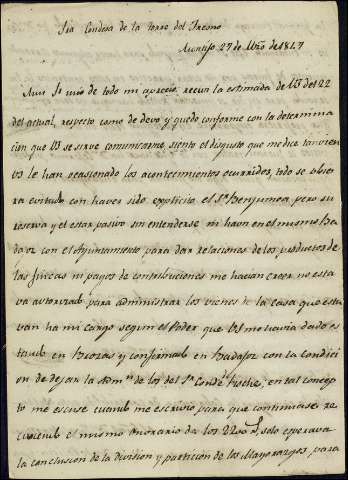 Sra Condesa de la torre del Fresno
Montijo. 27 de Mzo de 1847
Muy Sra mia de todo mi aprecio, recivi la estimada de VS del 22
del actual, respecto como de devo y quedo conforme con la determina
cion que VS se sirve comunicarme, siento el disgusto que me dice tanvien
VS le han ocasionado los acontecimientos ocurridos, todo se obier
ra evitado con haver sido explicito el Sr Benjumea, pero su
reserva y el estar pasivo sin entenderse ni haun en el mismo Ba
dajoz con el Ayuntamiento para dar relaciones de los productos de
las fincas ni pagos de contribuciones me hacian creer no esta
va autorizado para administrar los vienes de la casa que esta
van ha mi cargo segun el Poder que VS me havia dado es
tando en Brozas y confirmado en Badajoz con la condici
on de dejar la Admon de los del Sr Conde, en tal concep
to me escuse cuando me escrivio para que continuase re
civiendo el mismo onorario de los 2200 solo esperava
la conclusion de la division y particion de los Mayorazgos, para